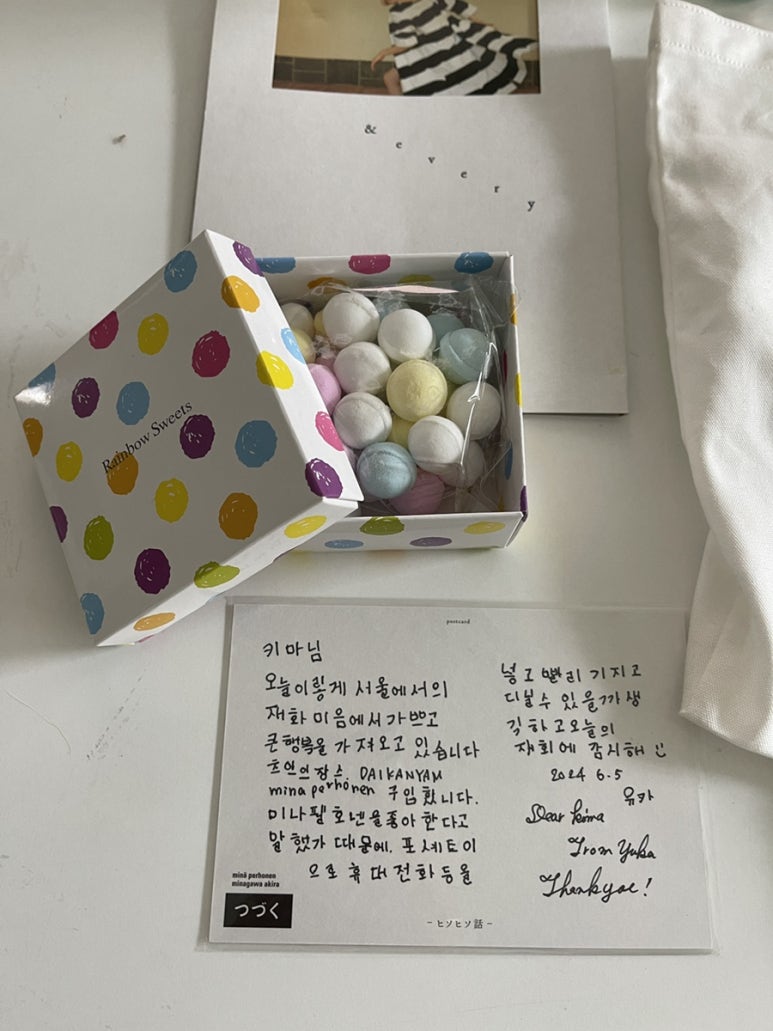 & every
Rainbow Sweets
postcard
키마님
오늘이렇게 서울에서의
재화 미음에서가쁘고
큰행복을 가져오고 있습니다
초연의장소. DAIKANYAM
mina perhonen 구입했니다.
미나펠호넨을좋아한다고
말했가 때문에. 포셰트이
으로 휴대전화등을
넣고 빨리 기지고
디닐수 있을까생
각하고오늘의
재회에 감시해
2024 6.5
유카
Dear kima
From Yuka
Thankyou!
minä perhonen
minagawa akira
つづく
-ヒソヒソ話-